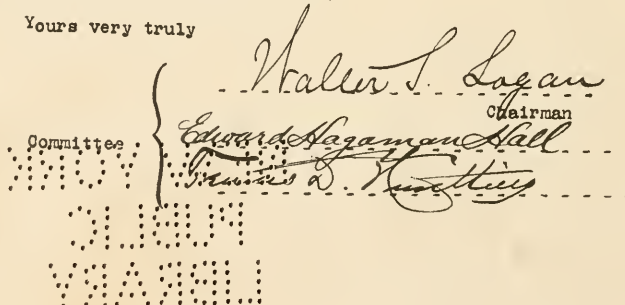 Yours very truly
Walter S. Logan
Chairman
Committee
Edward Hagaman Hall
D.
NEW YORK
PUBLIC
LIBRARY